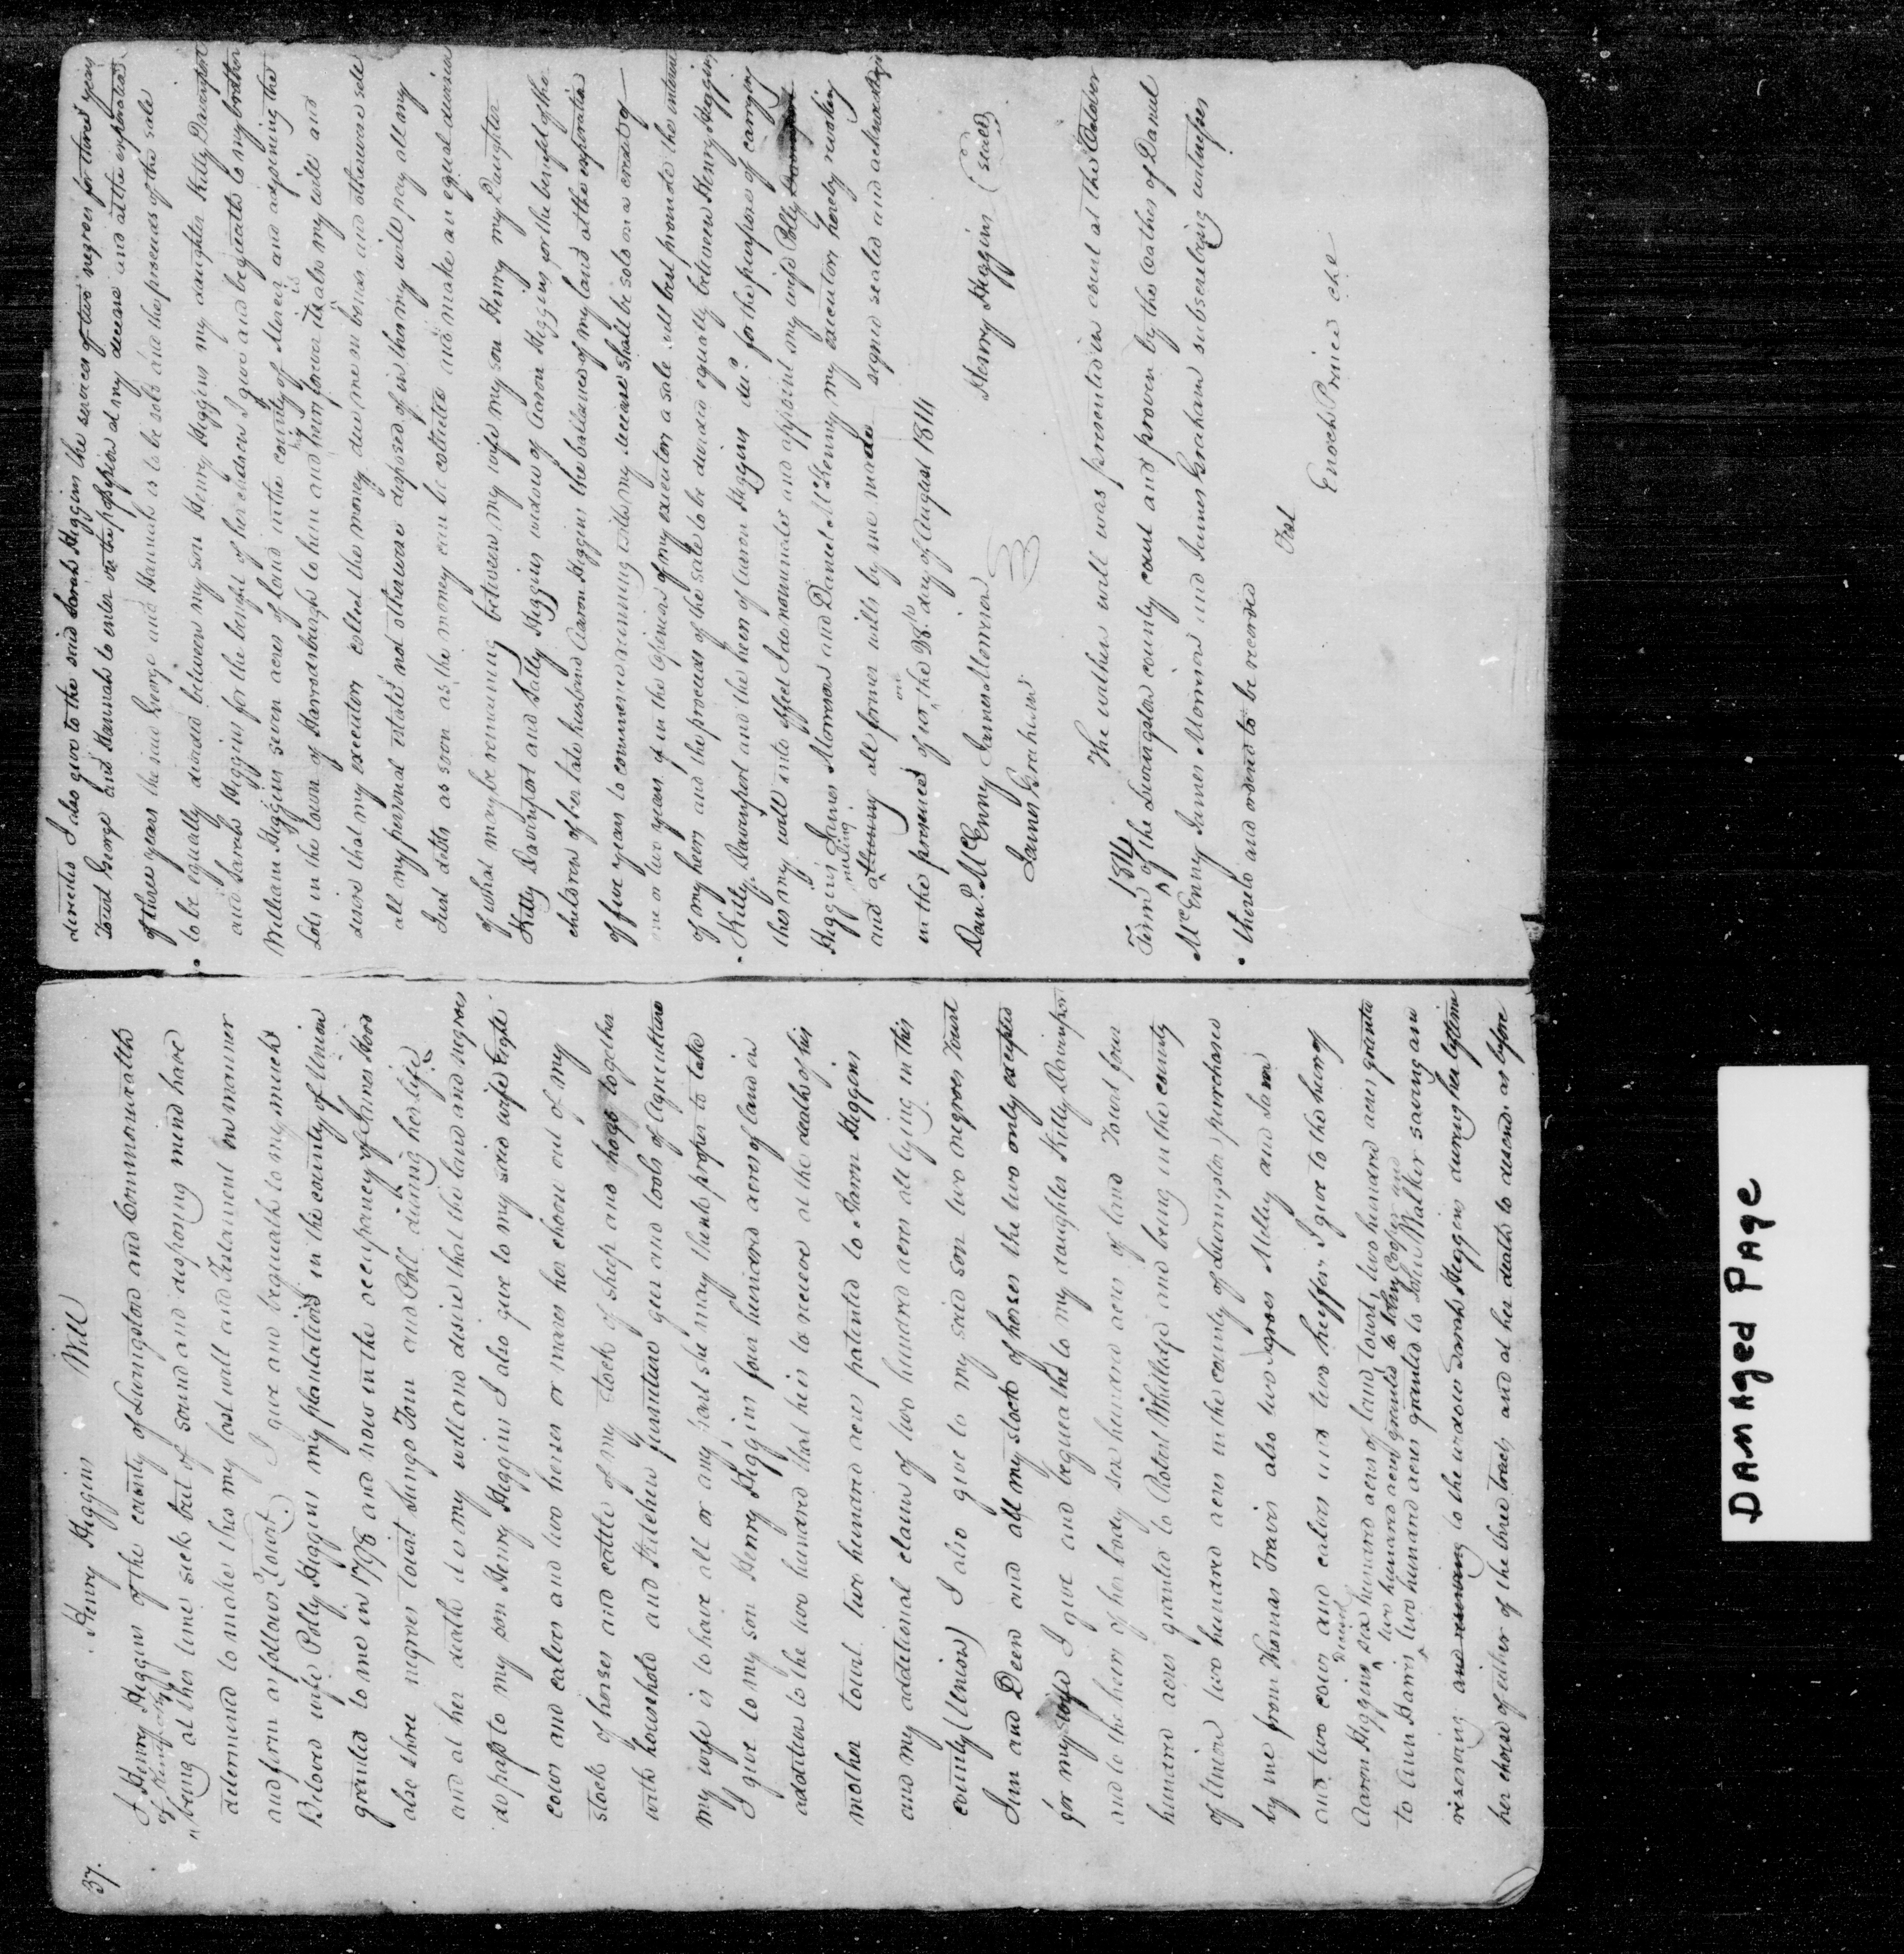 37.
Henry Higgins Will
I Henry Higgins of the county of Livingston and Commonwealth
of Kentucky
being at this time sick but of sound and disposing mind have
determined to make this my last will and Testament in manner
and firm as follows Towit) I give and bequeath to my much
Beloved wife Polly Higgins my plantation in the county of Union
granted to me in 1798 and now in the occupancy of James Hood
also three negroes towit Jingo Tom and Poll during her life
and at her death it is my will and desire that the land and negroes
do pass to my son Henry Higgins I also give to my said wife Eight
cows and calves and two horses or mares her choice out of my
stock of horses and cattle of my stock of sheep and hogs together
with household and Kitchen furniture gin and tools of Agriculture
my wife is to have all or any part she may think proper to take
I give to my son Henry Higgins four hundred acres of land in
addition to the two hundred that he is to receive at the death of his
mother towit two hundred acres patented to James Higgins
and my additional claim of two hundred acres all lying in this
county (Union) I also give to my said son two negroes Towit
Jim and Deen and all my stock of horses the two only excepted
for my wife I give and bequeathe to my daughter Kitty Davinport
and to the heirs of her body six hundred acres of land Towit four
hundred acres granted to Robert Whitlidge and being in the county
of Union two hundred acres in the county of Livingston purchased
by me from Thomas Travis also two negroes Milley and Sam
and two cows and calves and two heiffers I give to the heirs of
Aaron Higgins deceased six hundred acres of land, towit, two hundred acres granted
two hundred acres granted to Toby Cooper and
to Ann Harris two hundred acres granted to John Walker saving and
reserving and reserving to the widow Sarah Higgins during her lifetime
her choise of either of the three tracts and at her death to descend as before
directed I also give to the said Sarah Higgins the services of two negroes for three years
Towit George and Hannah to enter on the possession at my decease and at the expiration
of three years the said George and Hannah is to be sold and the proceeds of the sale
to be equally divided between my son Henry Higgins my daughter Kitty Davinport
and Sarah Higgins for the benefit of her children I give and bequeath to my brother
William Higgins seven acres of land in the county of Mercer and adjoining the
Lots in the town of Harrodsburgh to him and his heirs forever it is also my will and
desire that my executors collect the money due me on bonds and otherwise sell
all my personal estate not otherwise disposed of in this my will pay all my
Just debts as soon as the money can be collected and make an equal division
of what may be remaining between my wife my son Henry my Daughter
Kitty Davinport and Sally Higgins widow of Aaron Higgins for the benefit of the
children of her late husband Aaron Higgins the ballance of my land at the expiration
of five years to commence running with my decease shall be sold on a credit of
one or two years if in the opinion of my executors a sale will best promote the interest
of my heirs and the proceeds of the sale to be divided equally between Henry Higgins
Kitty Davenport and the heirs of Aaron Higgins decd. for the purpose of carrying
this my will into effect I do nominate and appoint my wife Polly
Higgins James Morrow and Daniel McKenny my executors hereby revoking
and all former wills by me made signed sealed and acknowledged
in the presence of us on the 28th. day of August 1814
Danl. McEnny James Morrow
James Graham
Henry Higgins (seal)
The within will was presented in court at the October
Term 1814 of the Livingston county court and proven by the oathes of Daniel
McEnny James Morrow and James Graham subscribing witnesses
thereto and ordered to be recorded
Test
Enoch Prince clk
Damaged Page